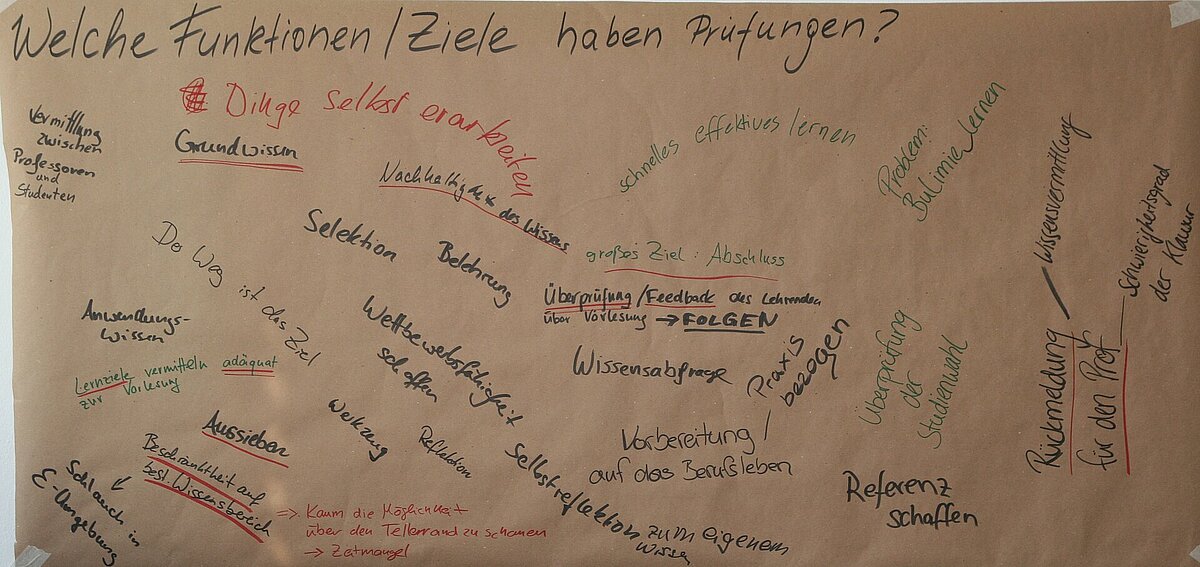 Welche Funktionen / Ziele haben Prüfungen?
Dinge selbst erarbeiten
Vermittlung
zwischen
Professoren
und
Studenten
Grundwissen
Nachhaltigkeit des Wissens
schnelles effektives lernen
Problem:
Bulimielernen
Wissensvermittlung
Schwierigkeitsgrad
der Klausur
Rückmeldung
für den Prof
Der Weg ist das Ziel
Selektion
Belehrung
großes Ziel: Abschluss
Überprüfung / Feedback des Lehrenden
über Vorlesung → FOLGEN
Anwendungs-
wissen
Wettbewerbsfähigkeit
schaffen
Wissensabfrage
Praxis
bezogen
Überprüfung
der
Studienwahl
Lernziele vermitteln adäquat
zur Vorlesung
Aussieben
Werkzeug
Reflektion
Vorbereitung /
auf das Berufsleben
Selbstreflektion zum eigenem
Wissen
Referenz
schaffen
Beschränktheit auf
best. Wissensbereich
⇒ Kaum die Möglichkeit
über den Tellerrand zu schauen
→ Zeitmangel
Schlauch in
E-Umgebung